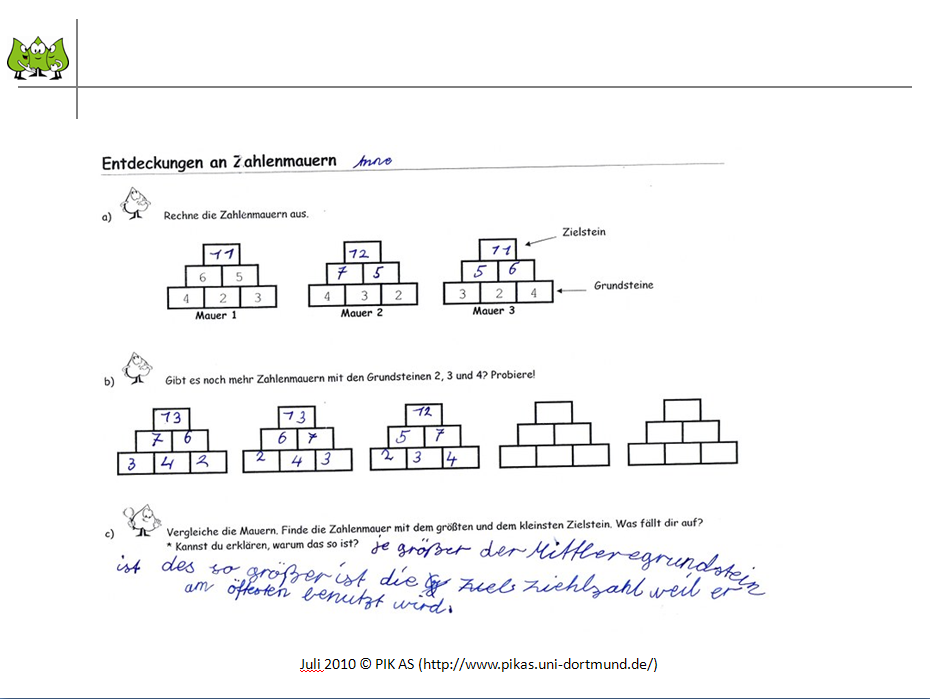 Entdeckungen an Zahlenmauern Anna
a) Rechne die Zahlenmauern aus.
Zielstein
11 12 11
6 5 7 5 5 6
Grundsteine
4 2 3 4 3 2 3 2 4
Mauer 1 Mauer 2 Mauer 3
b) Gibt es noch mehr Zahlenmauern mit den Grundsteinen 2, 3 und 4? Probiere!
13 13 12
7 6 6 7 5 7
3 4 2 2 4 3 2 3 4
c) Vergleiche die Mauern. Finde die Zahlenmauer mit dem größten und dem kleinsten Zielstein. Was fällt dir auf?
* Kannst du erklären, warum das so ist? je größer der Mittleregrundstein
ist des so größer ist die Ziels Ziehlzahl weil er
am öftesten benutzt wird.
Juli 2010 © PIK AS (http://www.pikas.uni-dortmund.de/)